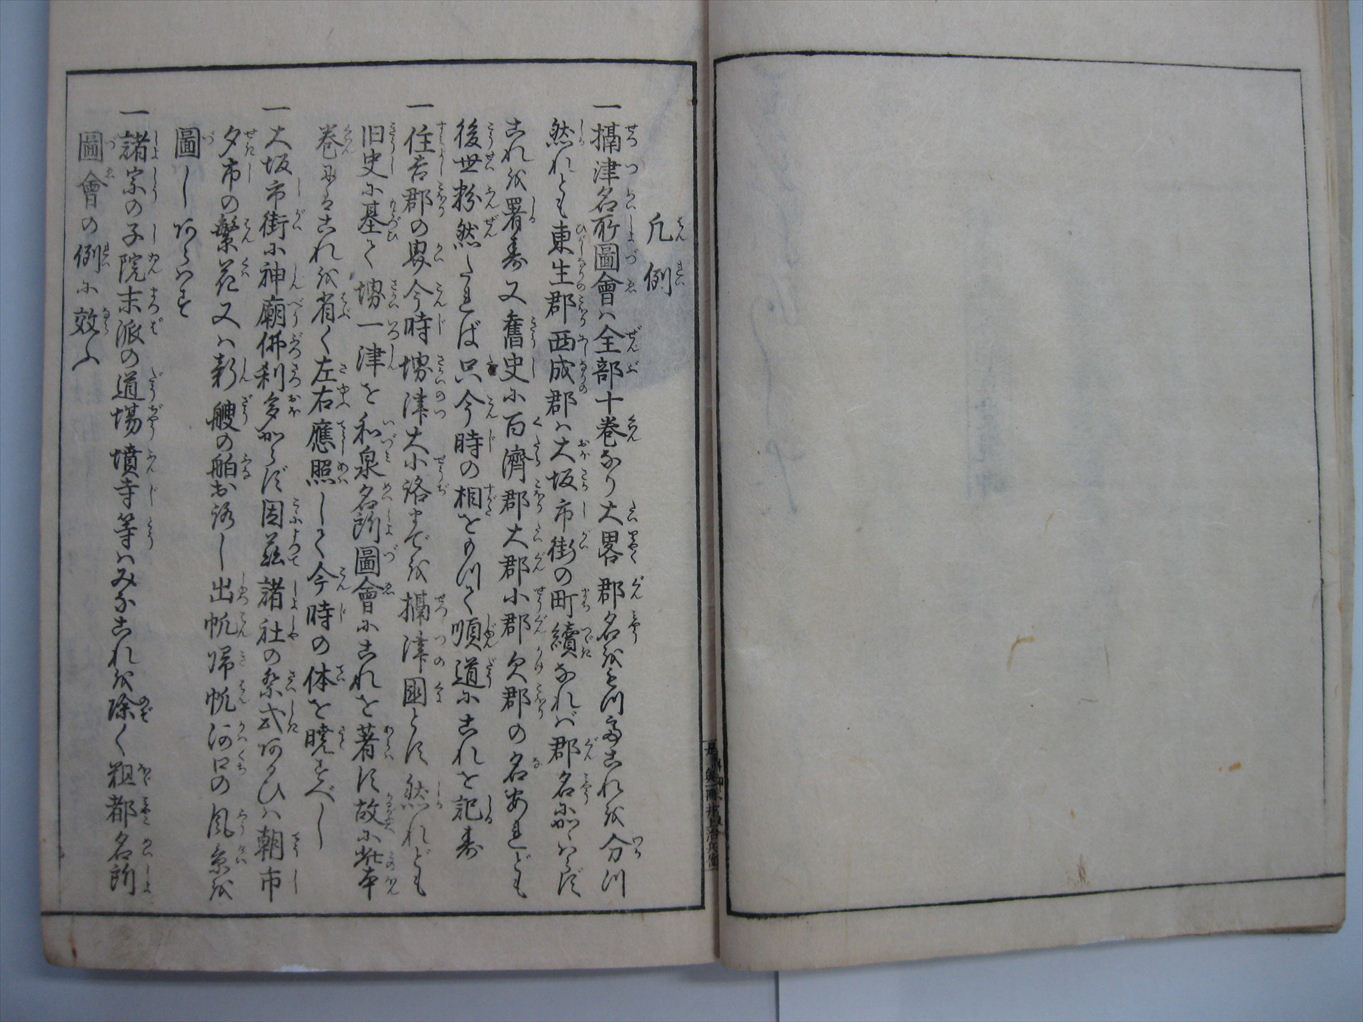 凡例
一摂津名所圖會ハ全部十巻なり大畧郡名をもつてこれを分つ
然れども東生郡西成郡ハ大坂市街の町續なれバ郡名にかゝはらず
これを署す又舊史に百濟郡大郡小郡欠郡の名あれども
後世粉然たれば只今時の相をもつて順道にこれを記す
一住吉郡の界今時堺津大小路までを摂津国とす然れども
旧史に基て堺一津を和泉名所圖會にこれを著す故に此本
巻にはこれを省く左右應照して今時の体を暁すべし
一大坂市街に神廟佛刹多からず因茲諸社の祭式あるひハ朝市
夕市の繁花又ハ新艘の舶おろし出帆帰帆河口の風景を
圖しあらハす
一諸宗の子院末派の道場墳寺等ハみなこれを除く粗都名所
圖會の例に效ふ